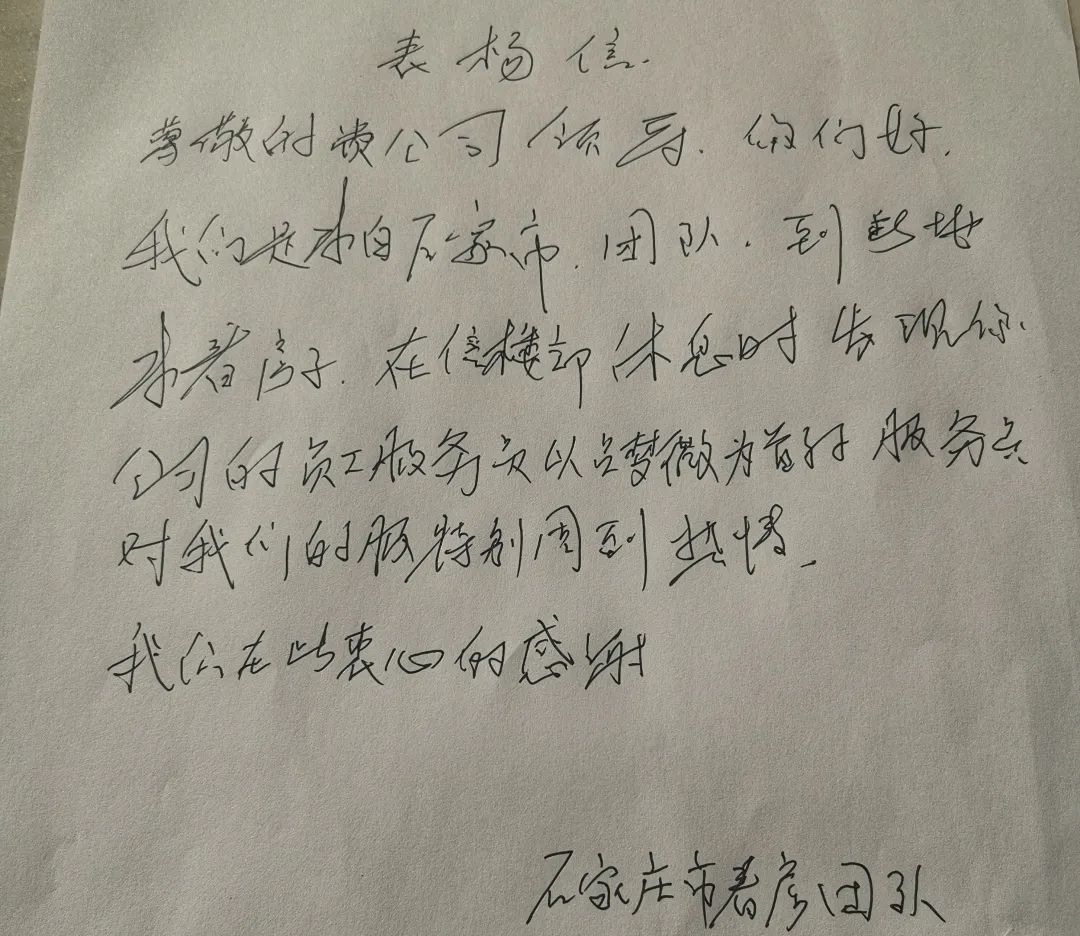 表杨信.
尊敬的贵公司领导.你们好.
我们是来自石家市.团队.到
来看房子.在售楼部休息时发现你
公司的员工服务员以吕梦微为首的服务员
对我们的服特别周到热情.
我们在此衷心的感谢
石家庄市看房团队